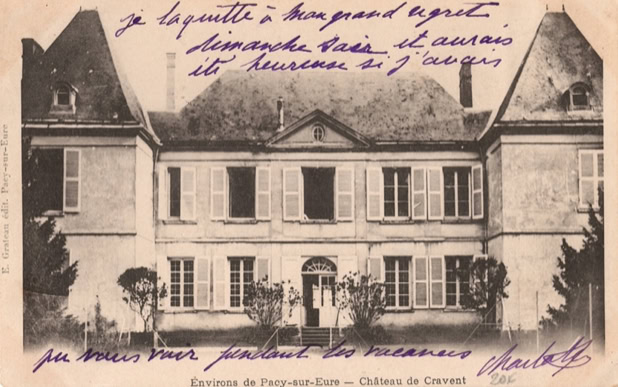 je la quitte à mon grand regret
dimanche soir et aurais
été heureuse si j'avais
pu vous voir pendant les vacances
Charlotte
20F
Environs de Pacy-sur-Eure — Château de Cravent
E. Grateau édit. Pacy-sur-Eure